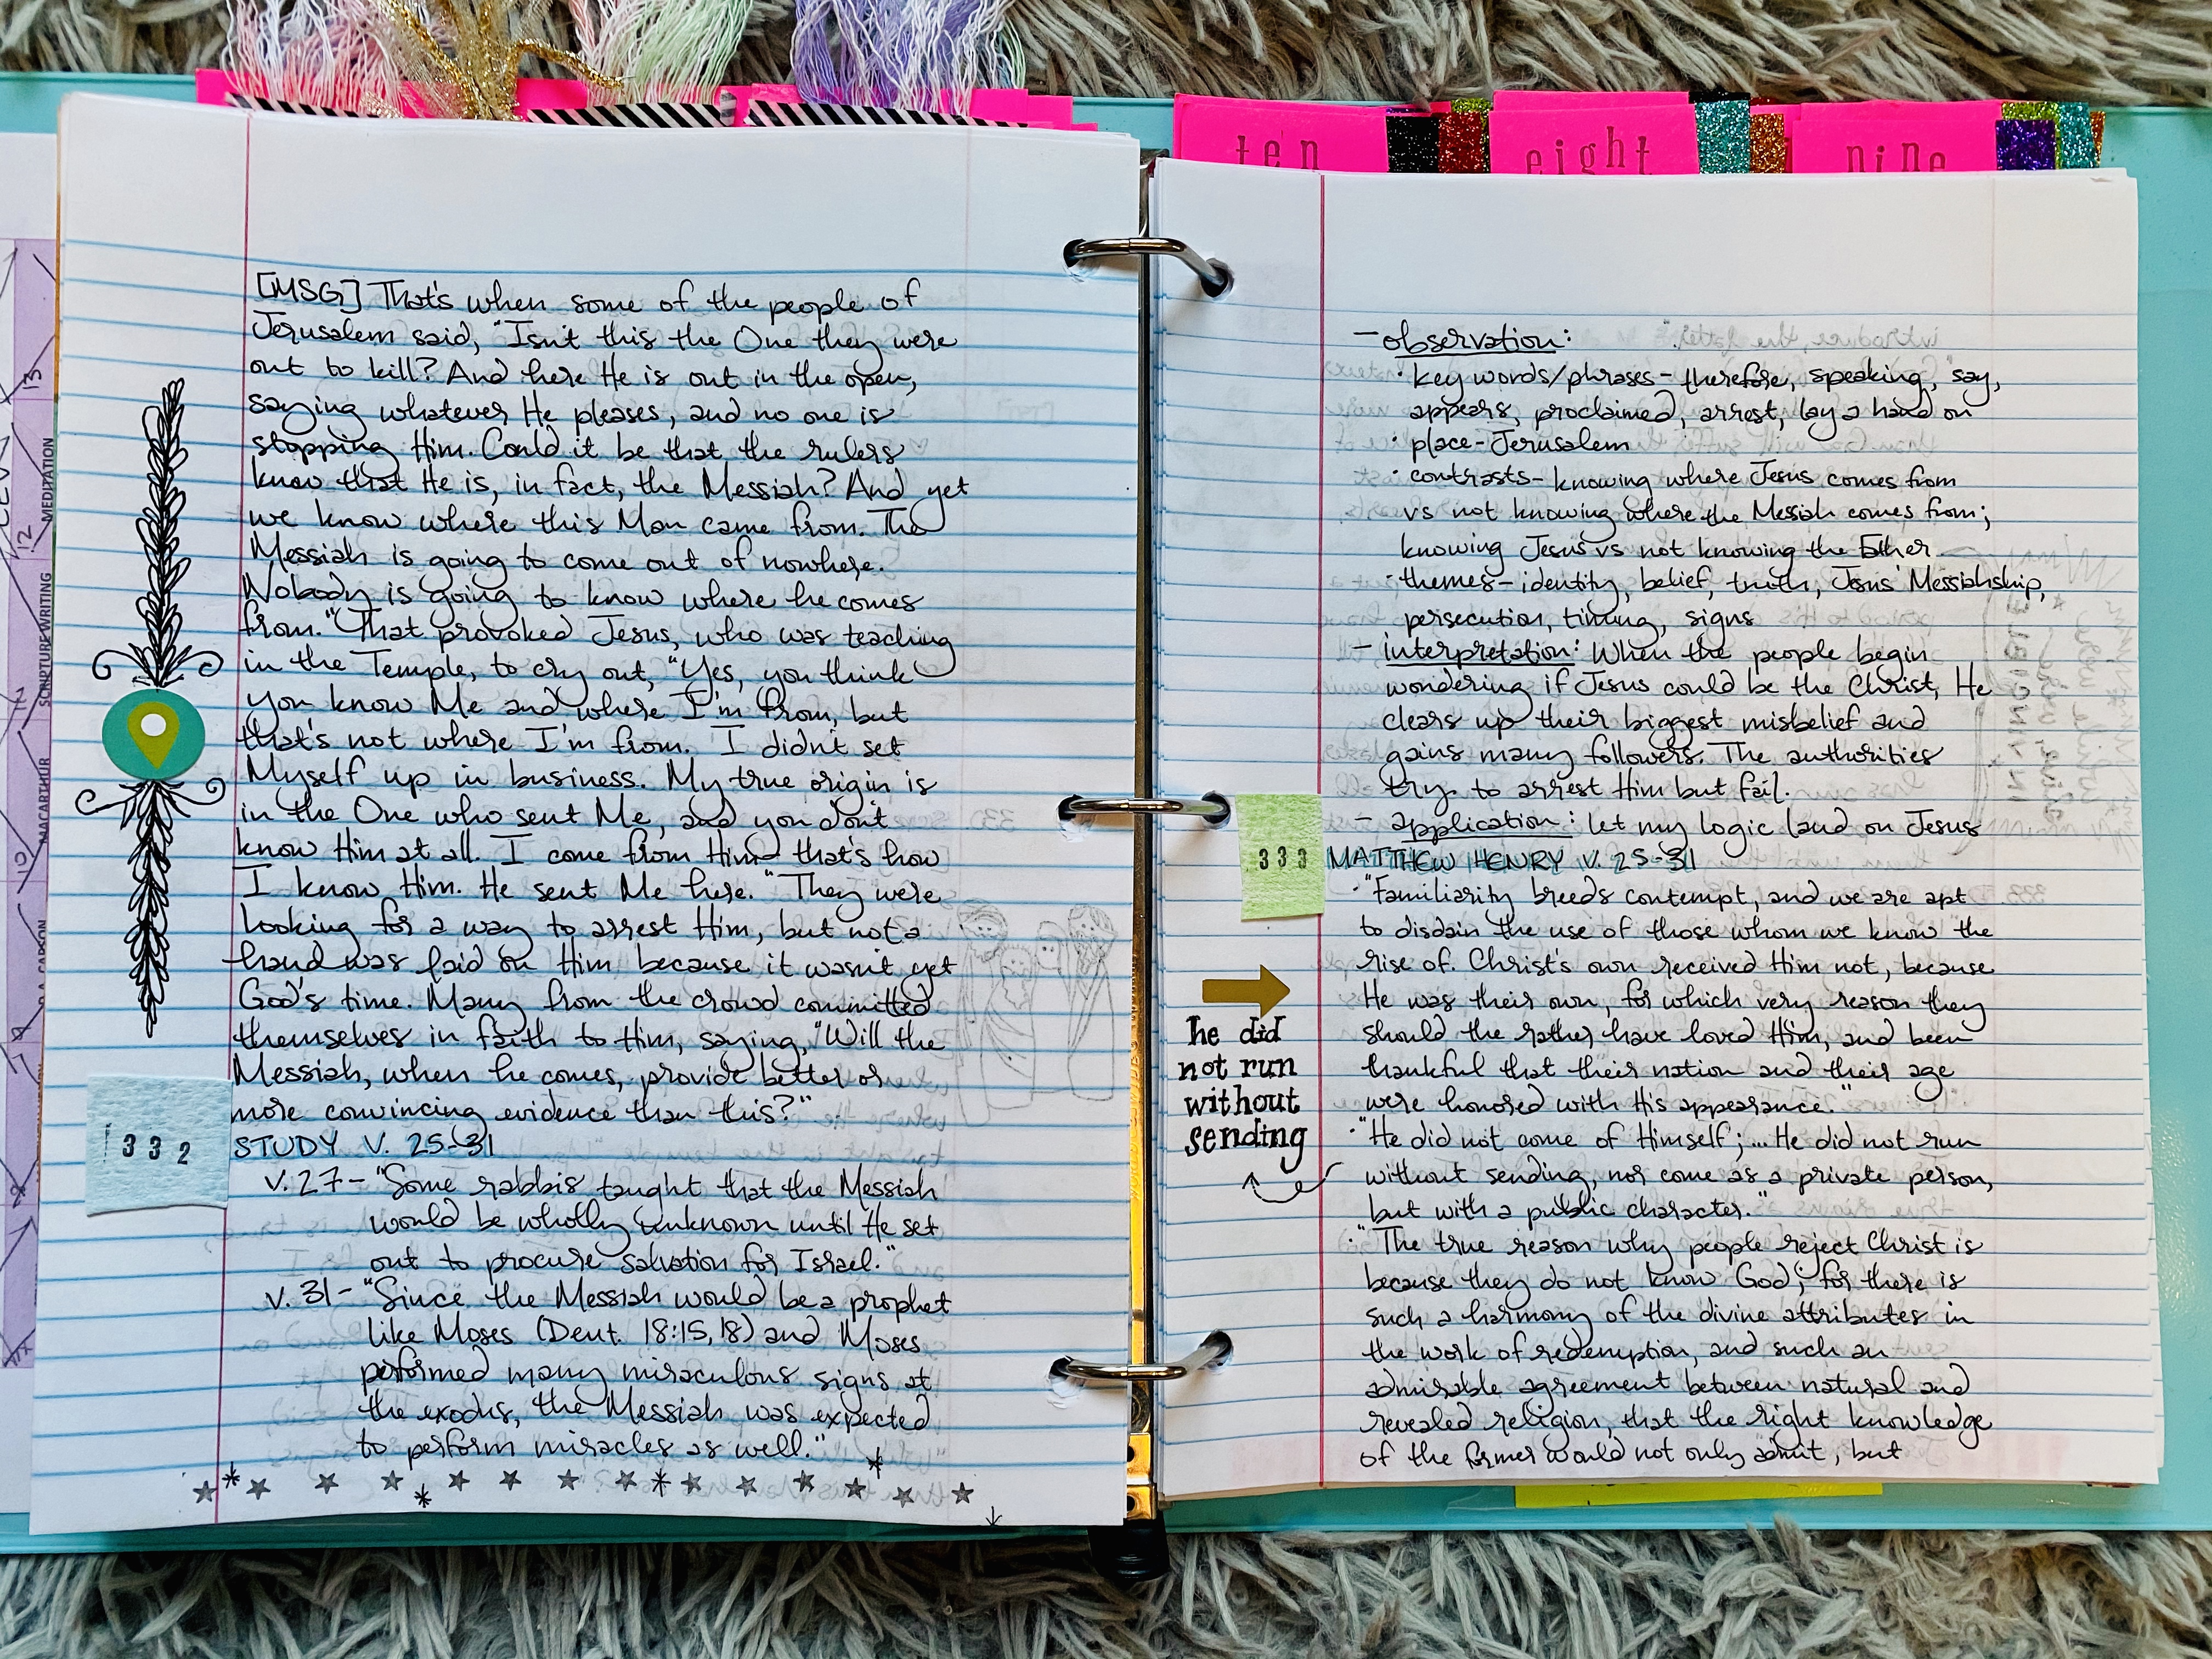 [MSG] That's when some of the people of
Jerusalem said, "Isn't this the One they were
out to kill? And here He is out in the open,
saying whatever He pleases, and no one is
stopping Him. Could it be that the rulers
know that He is, in fact, the Messiah? And yet
we know where this Man came from. The
Messiah is going to come out of nowhere.
Nobody is going to know where he comes
from." That provoked Jesus, who was teaching
in the Temple, to cry out, "Yes, you think
you know Me and where I'm from, but
that's not where I'm from. I didn't set
Myself up in business. My true origin is
in the One who sent Me, and you don't
know Him at all. I come from Him - that's how
I know Him. He sent Me here." They were
looking for a way to arrest Him, but not a
hand was laid on Him because it wasn't yet
God's time. Many from the crowd committed
themselves in faith to Him, saying, "Will the
Messiah, when he comes, provide better or
more convincing evidence than this?"
332
STUDY V. 25-31
v. 27 - "Some rabbis taught that the Messiah
would be wholly unknown until He set
out to procure salvation for Israel."
v. 31 - "Since the Messiah would be a prophet
like Moses (Deut. 18:15, 18) and Moses
performed many miraculous signs at
the exodus, the Messiah was expected
to perform miracles as well."
13
12
MEDITATION
11
SCRIPTURE WRITING
10
MACARTHUR
D.A. CARSON
ten
eight
nine
- observation:
· key words/phrases - therefore, speaking, say,
appears, proclaimed, arrest, lay a hand on
· place - Jerusalem
· contrasts - knowing where Jesus comes from
vs not knowing where the Messiah comes from;
knowing Jesus vs not knowing the Father
· themes - identity, belief, truth, Jesus' Messiahship,
persecution, timing, signs
- interpretation: When the people begin
wondering if Jesus could be the Christ, He
clears up their biggest misbelief and
gains many followers. The authorities
try to arrest Him but fail.
- application: let my logic land on Jesus
333
MATTHEW HENRY V. 25-31
· "Familiarity breeds contempt, and we are apt
to disdain the use of those whom we know the
rise of. Christ's own received Him not, because
He was their own, for which very reason they
should the rather have loved Him, and been
thankful that their nation and their age
were honored with His appearance."
· "He did not come of Himself; ... He did not run
without sending, nor come as a private person,
but with a public character."
· "The true reason why people reject Christ is
because they do not know God; for there is
such a harmony of the divine attributes in
the work of redemption, and such an
admirable agreement between natural and
revealed religion, that the right knowledge
of the former would not only admit, but
he did
not run
without
sending